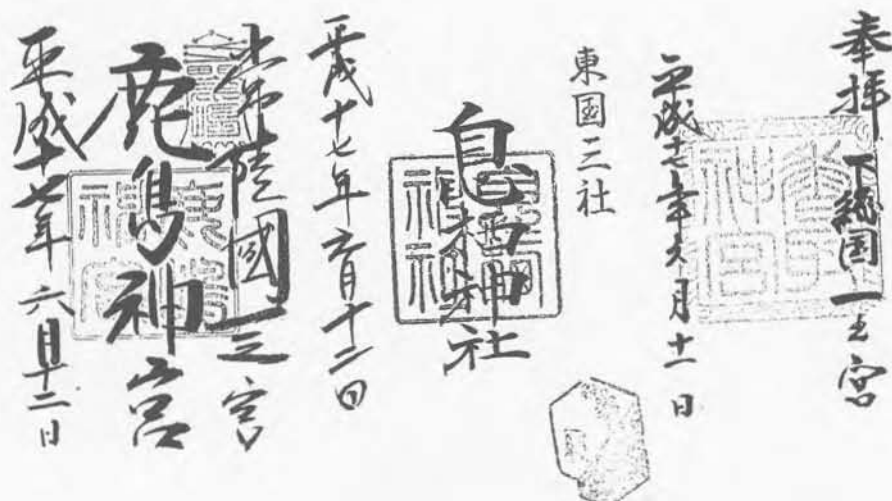 奉拝 下総国一之宮
香取神宮
平成十七年六月十一日
東国三社
息栖神社
息栖神社
平成十七年六月十二日
常陸國一之宮
鹿島神宮
鹿島神宮
平成十七年 六月十二日